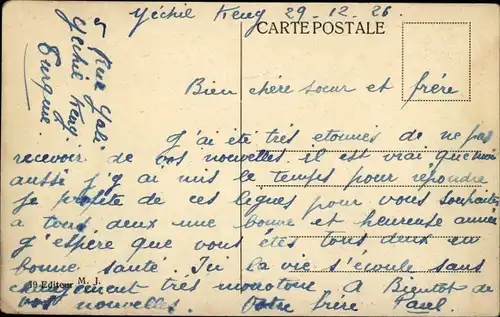 Yéchil Keuy 29-12-26.
CARTE POSTALE
5 Rue Yali
Yéchil Keuy
Turquie
Bien chère sœur et frère
J'ai été très etonnés de ne pas
recevoir de vos nouvelles il est vrai que moi
aussi j'y ai mis le temps pour répondre
je profite de ces lignes pour vous souhaiter
a tous deux une bonne et heureuse année
j'espère que vous étes tous deux en
bonne santé. Ici la vie s'écoule sans
changement très monotone. A Bientot de
vos nouvelles. Votre frère Paul.
19 Editeur M. J.